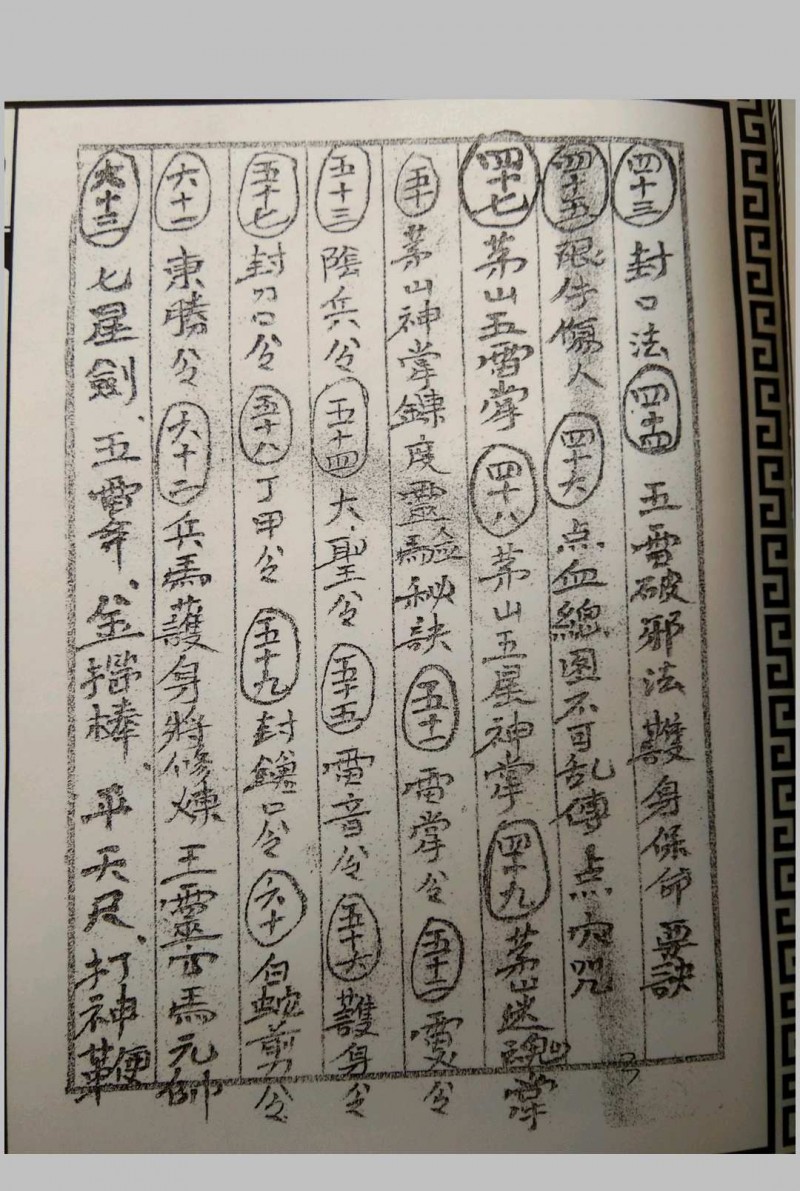 四十三 封口法 四十四 五雷破邪法 護身保命 要訣
四十五 眼法傷人 四十六 点血總图不可乱傳 点穴咒
四十七 茅山五雷掌 四十八 茅山五星神掌 四十九 茅山迷魂掌
五十 茅山神掌鍊度靈驗秘訣 五十一 雷掌令 五十二 令
五十三 陰兵令 五十四 大聖令 五十五 雷音令 五十六 護身令
五十七 封刀口令 五十八 丁甲令 五十九 封鎗口令 六十 白蛇剪令
六十一 東勝令 六十二 兵馬護身將修煉 王靈官馬元帥
六十三 七星劍、五雷、金棒、平天尺、打神鞭